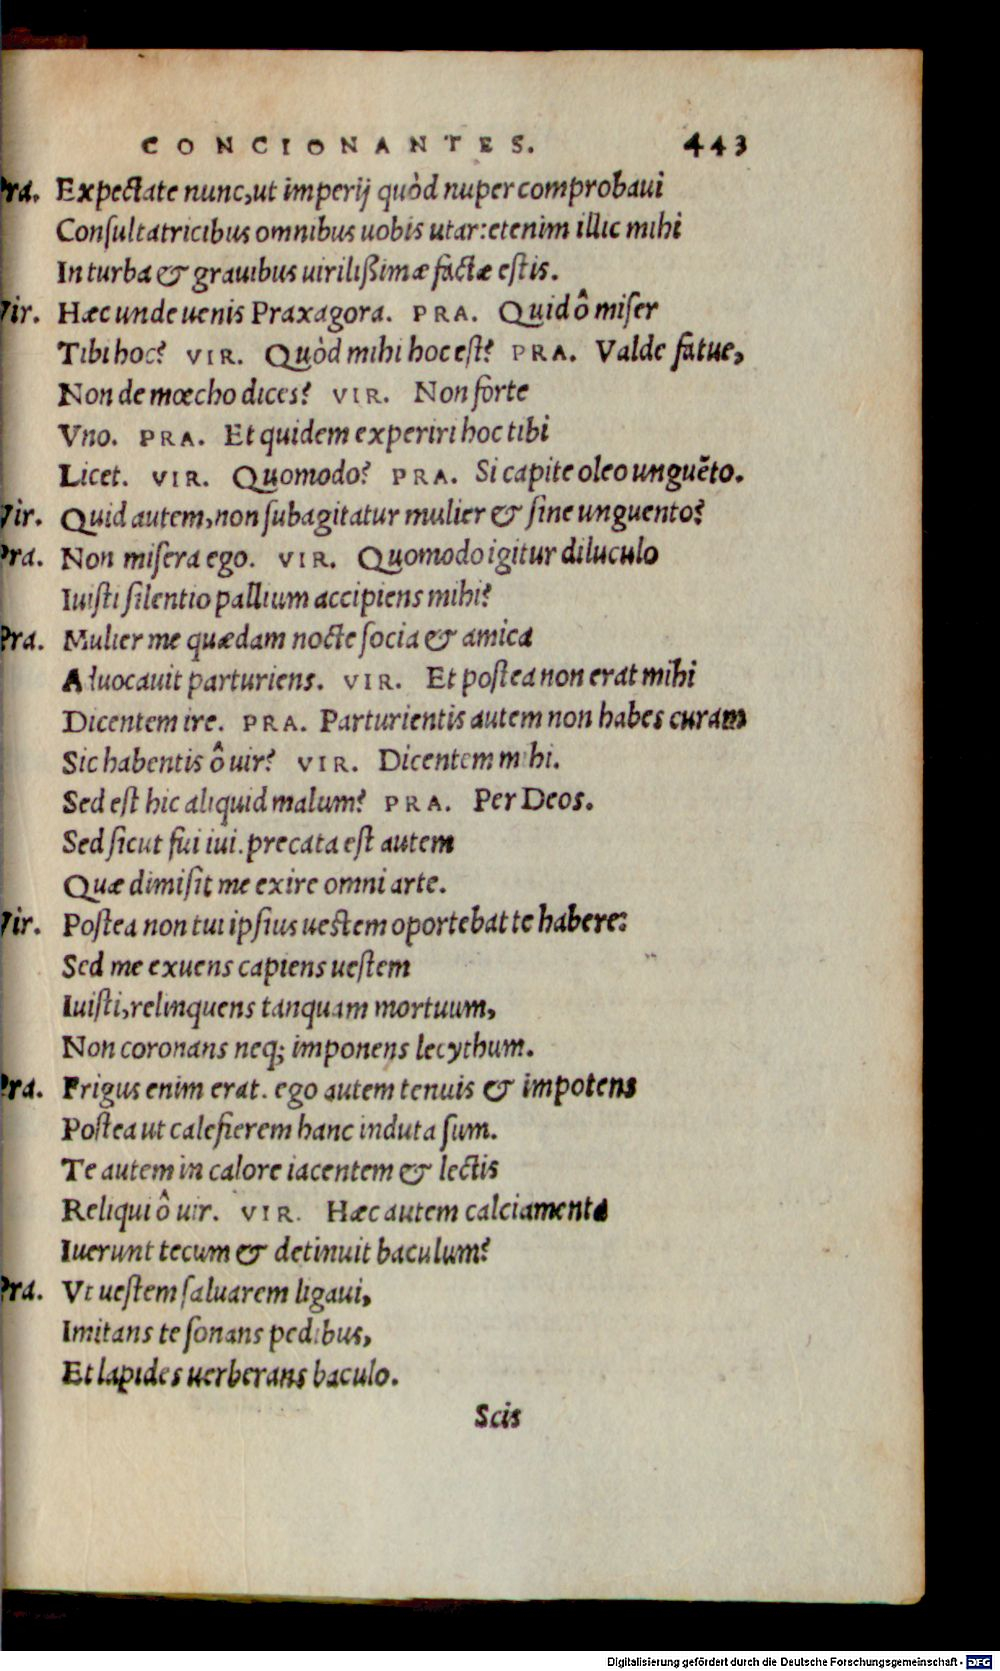 CONCIONANTES. 443
Pra. Expectate nunc, ut imperij quòd nuper comprobaui
Consultatricibus omnibus uobis utar: etenim illic mihi
In turba & grauibus uirilißimæ factæ estis.
Vir. Hæc unde uenis Praxagora. PRA. Quid ô miser
Tibi hoc? VIR. Quòd mihi hoc est? PRA. Valde fatue,
Non de mœcho dices? VIR. Non forte
Vno. PRA. Et quidem experiri hoc tibi
Licet. VIR. Quomodo? PRA. Si capite oleo unguẽto.
Vir. Quid autem, non subagitatur mulier & sine unguento?
Pra. Non misera ego. VIR. Quomodo igitur diluculo
Iuisti silentio pallium accipiens mihi?
Pra. Mulier me quædam nocte socia & amica
Aduocauit parturiens. VIR. Et postea non erat mihi
Dicentem ire. PRA. Parturientis autem non habes curam
Sic habentis ô uir? VIR. Dicentem mihi.
Sed est hic aliquid malum? PRA. Per Deos.
Sed sicut fui iui. precata est autem
Quæ dimisit me exire omni arte.
Vir. Postea non tui ipsius uestem oportebat te habere:
Sed me exuens capiens uestem
Iuisti, relinquens tanquam mortuum,
Non coronans neq; imponens lecythum.
Pra. Frigus enim erat. ego autem tenuis & impotens
Postea ut calefierem hanc induta sum.
Te autem in calore iacentem & lectis
Reliqui ô uir. VIR. Hæc autem calciamenta
Iuerunt tecum & detinuit baculum?
Pra. Vt uestem saluarem ligaui,
Imitans te sonans pedibus,
Et lapides uerberans baculo.
Scis
Digitalisierung gefördert durch die Deutsche Forschungsgemeinschaft - DFG